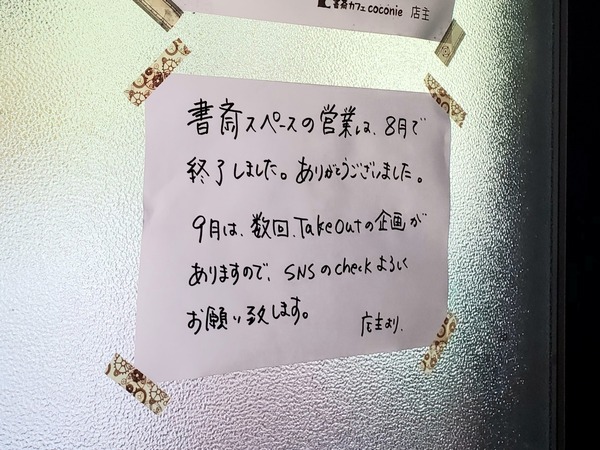 書斎カフェ coconie 店主
書斎スペースの営業は、8月で
終了しました。ありがとうございました。
9月は、数回、TakeOutの企画が
ありますので、SNSのcheckよろしく
お願い致します。
店主より.